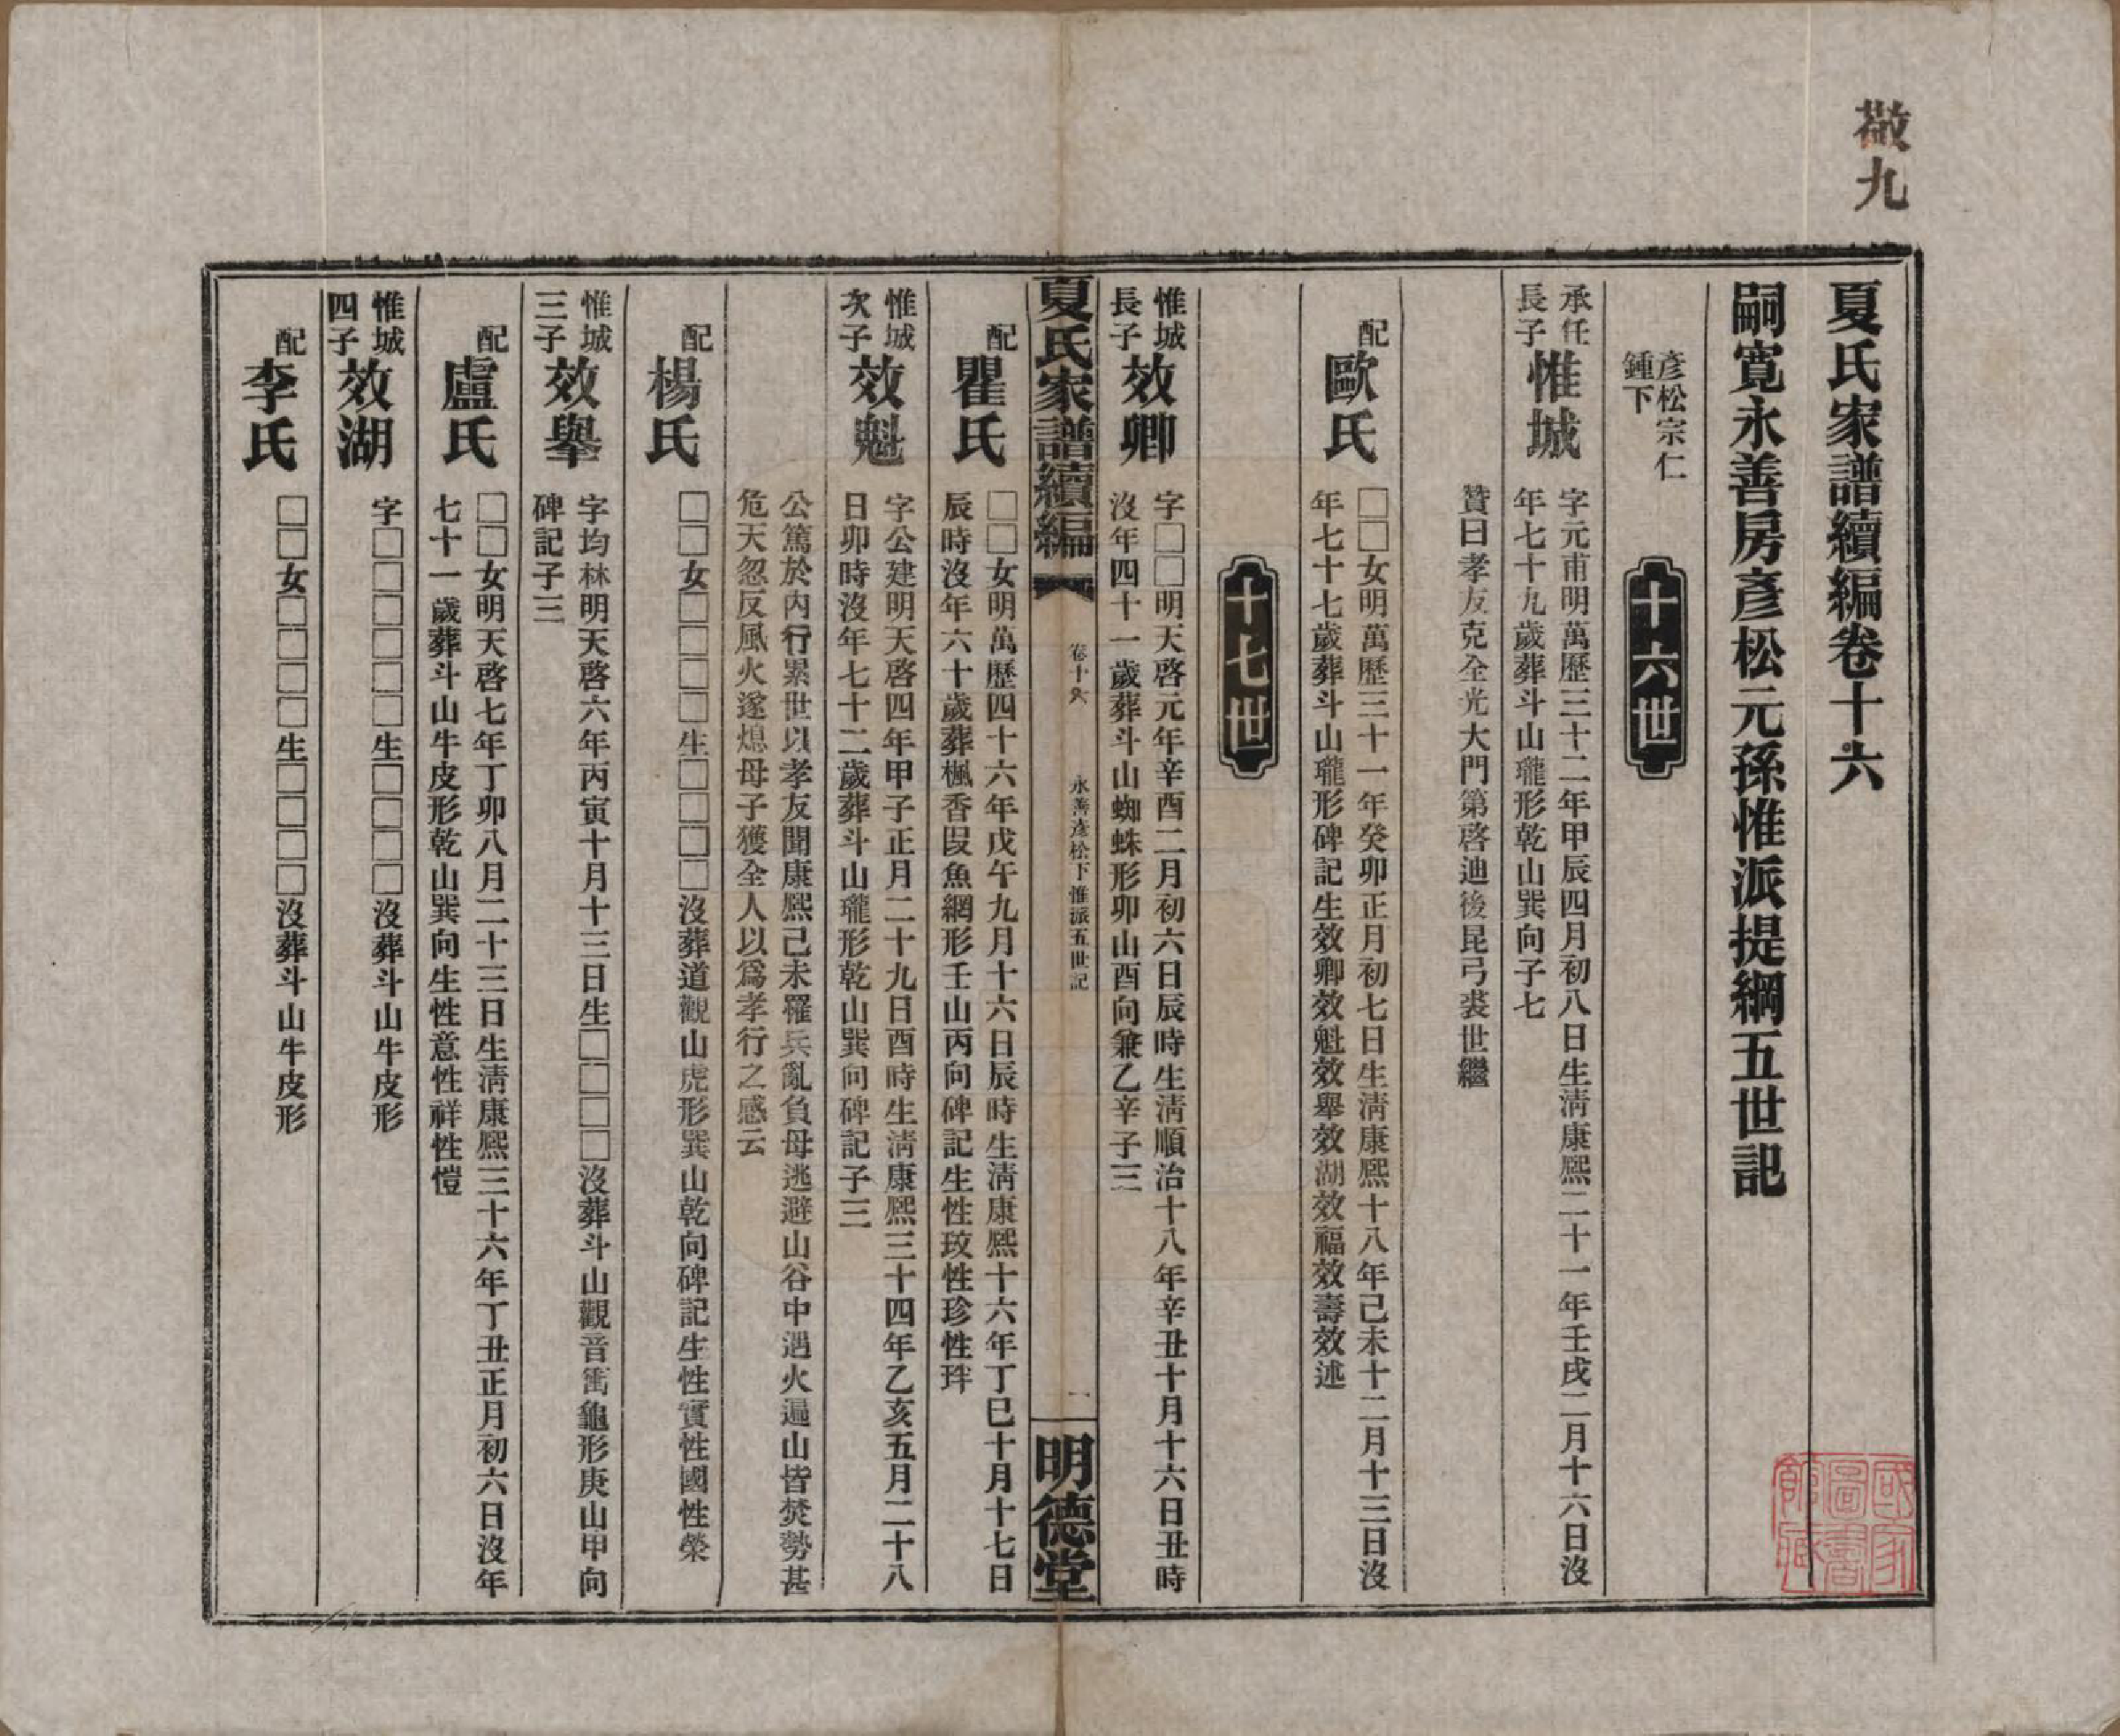 敬九
夏氏家譜續編卷十六
嗣寬永善房彥松元孫惟派提綱五世記
彥松宗仁
鍾下
十六世
承任
長子
惟城
字元甫明萬歷三十二年甲辰四月初八日生淸康熙二十一年壬戌二月十六日沒
年七十九歲葬斗山瓏形乾山巽向子七
贊曰孝友克全光大門第啓迪後昆弓裘世繼
配
歐氏
□□女明萬歷三十一年癸卯正月初七日生淸康熙十八年己未十二月十三日沒
年七十七歲葬斗山瓏形碑記生效卿效魁效舉效湖效福效壽效述
十七世
惟城
長子
效卿
字□□明天啓元年辛酉二月初六日辰時生淸順治十八年辛丑十月十六日丑時
沒年四十一歲葬斗山蜘蛛形卯山酉向兼乙辛子三
夏氏家譜續編
卷十六
永善彥松下惟派五世記
一
明德堂
配
瞿氏
□□女明萬歷四十六年戊午九月十六日辰時生淸康熙十六年丁巳十月十七日
辰時沒年六十歲葬楓香叚魚網形壬山丙向碑記生性玟性珍性玶
惟城
次子
效魁
字公建明天啓四年甲子正月二十九日酉時生淸康熙三十四年乙亥五月二十八
日卯時沒年七十二歲葬斗山瓏形乾山巽向碑記子三
公篤於內行累世以孝友聞康熙己未羅兵亂負母逃避山谷中遇火遍山皆焚勢甚
危天忽反風火遂熄母子獲全人以爲孝行之感云
配
楊氏
□□女□□□□生□□□□沒葬道觀山虎形巽山乾向碑記生性實性國性榮
惟城
三子
效舉
字均林明天啓六年丙寅十月十三日生□□□□沒葬斗山觀音衝龜形庚山甲向
碑記子三
配
盧氏
□□女明天啓七年丁卯八月二十三日生淸康熙三十六年丁丑正月初六日沒年
七十一歲葬斗山牛皮形乾山巽向生性意性祥性愷
惟城
四子
效湖
字□□□□□□生□□□□沒葬斗山牛皮形
配
李氏
□□女□□□□生□□□□沒葬斗山牛皮形
國家
圖書
館藏